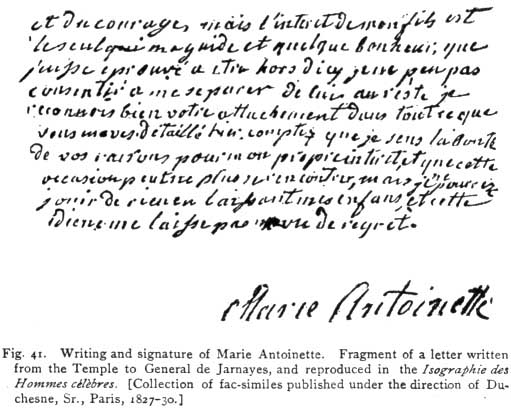 et du courage, mais l'interet de mon fils est
le seul qui me guide et quelque bonheur, que
j'eusse eprouvé a etre hors d'icy je ne peu pas
consentir a me separer de lui. au reste je
reconnois bien votre attachement dans tout ce que
vous m'avés detaillé hier. comptez que je sens la bonté
de vos raisons pour mon propre interêt, et que cette
occasion peut ne plus se rencontrer, mais je ne pourois
jouir de rien en laissant mes enfans, et cette
idiene me laisse pas de regrèt.
Marie Antoinette
Fig. 41. Writing and signature of Marie Antoinette. Fragment of a letter written
from the Temple to General de Jarnayes, and reproduced in the Isographie des
Hommes célèbres. [Collection of fac-similes published under the direction of Du-
chesne, Sr., Paris, 1827-30.]